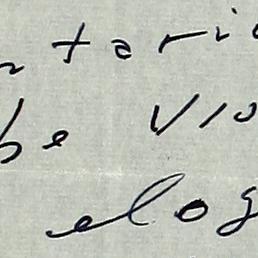 ntari
be vio
elog